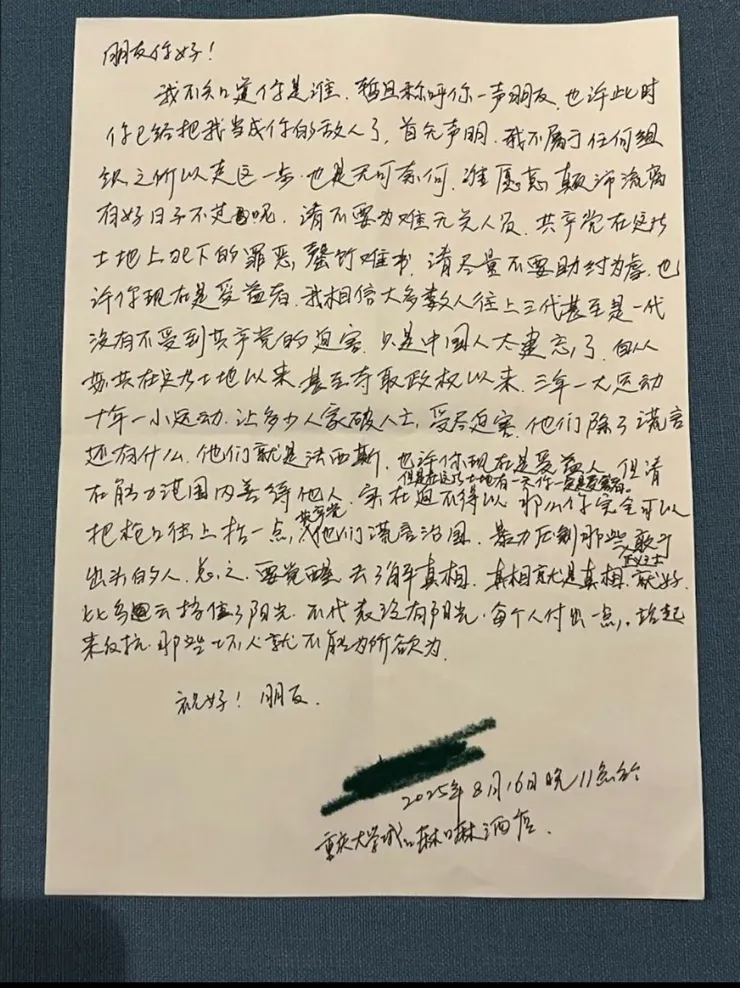 朋友你好！
我不知道你是谁，暂且称呼你一声朋友，也许此时
你已给把我当成你的敌人了，首先声明，我不属于任何组
织之所以走这一步，也是无可奈何，谁愿意颠沛流离
有好日子不过呢，请不要为难无关人员，共产党在这片
土地上犯下的罪恶，罄竹难书，请尽量不要助纣为虐，也
许你现在是受益者，我相信大多数人往上三代甚至是一代
没有不受到共产党的迫害，只是中国人太健忘了，自从
苏共在这片土地以来甚至夺取政权以来，三年一大运动
十年一小运动，让多少人家破人亡，受尽迫害，他们除了谎言
还有什么，他们就是法西斯，也许你现在是受益人，但请
但是在这片土地有一天你一定是受害者。
在能力范围内善待他人，实在迫不得以，那么你完全可以
共产党
把枪口往上抬一点，他们谎言治国，暴力压制那些敢于
出头的人，总之，要觉醒，去了解真相，真相就是真相，就好
比乌云挡住了阳光，不代表没有阳光，每个人付出一点，站起
来反抗，那些坏人就不能为所欲为，
祝好！朋友，
2025年8月16日晚11点于
重庆大学城
酒店，